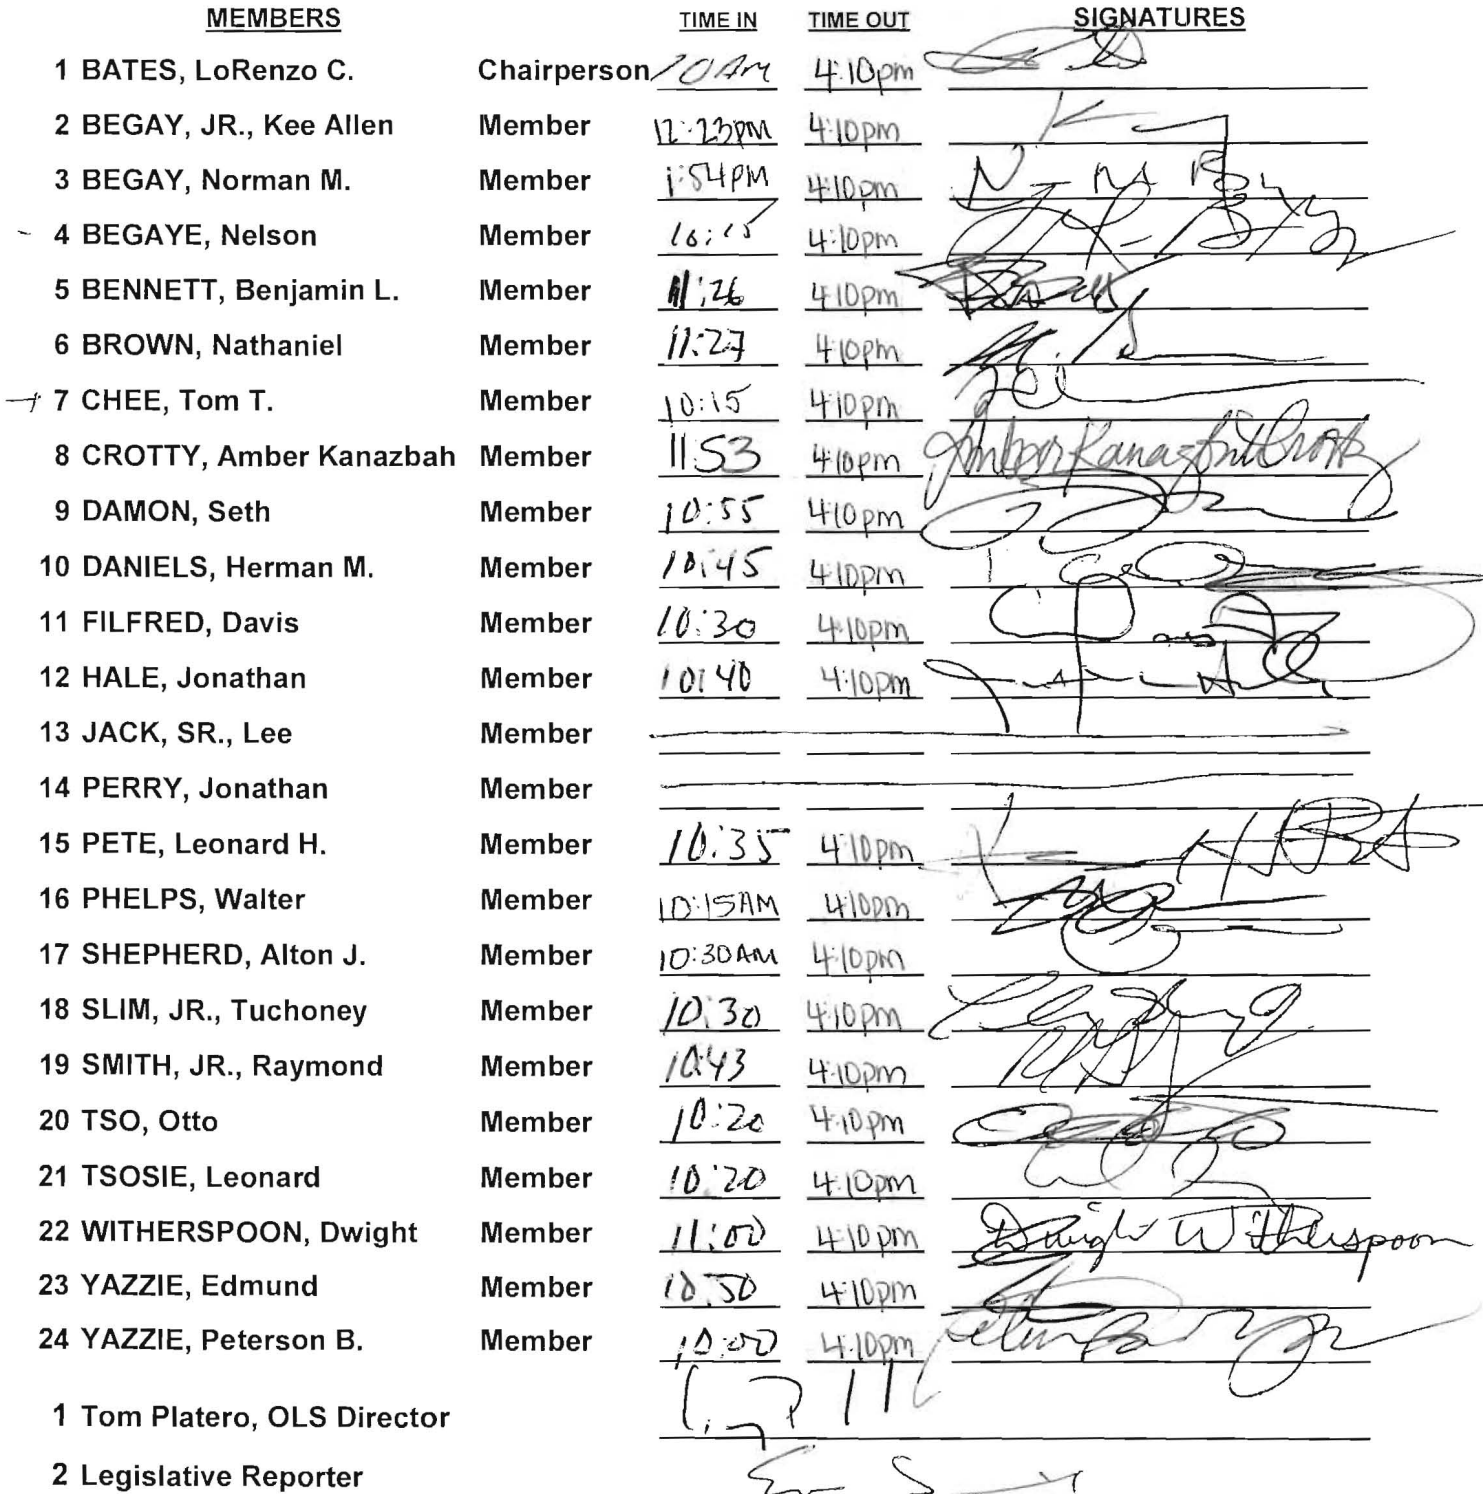 MEMBERS TIME IN TIME OUT SIGNATURES
1 BATES, LoRenzo C. Chairperson 10AM 4:10pm
2 BEGAY, JR., Kee Allen Member 12:23PM 4:10pm
3 BEGAY, Norman M. Member 1:54PM 4:10pm
4 BEGAYE, Nelson Member 10:15 4:10pm
5 BENNETT, Benjamin L. Member 11:26 4:10pm
6 BROWN, Nathaniel Member 11:27 4:10pm
7 CHEE, Tom T. Member 10:15 4:10pm
8 CROTTY, Amber Kanazbah Member 1153 4:10pm Amber Kanazbah Crotty
9 DAMON, Seth Member 10:55 4:10pm
10 DANIELS, Herman M. Member 10:45 4:10pm
11 FILFRED, Davis Member 10:30 4:10pm
12 HALE, Jonathan Member 10:40 4:10pm
13 JACK, SR., Lee Member
14 PERRY, Jonathan Member
15 PETE, Leonard H. Member 10:35 4:10pm
16 PHELPS, Walter Member 10:15AM 4:10pm
17 SHEPHERD, Alton J. Member 10:30AM 4:10pm
18 SLIM, JR., Tuchoney Member 10:30 4:10pm
19 SMITH, JR., Raymond Member 10:43 4:10pm
20 TSO, Otto Member 10:20 4:10pm
21 TSOSIE, Leonard Member 10:20 4:10pm
22 WITHERSPOON, Dwight Member 11:00 4:10pm Dwight Witherspoon
23 YAZZIE, Edmund Member 10:50 4:10pm
24 YAZZIE, Peterson B. Member 10:00 4:10pm
1 Tom Platero, OLS Director
2 Legislative Reporter